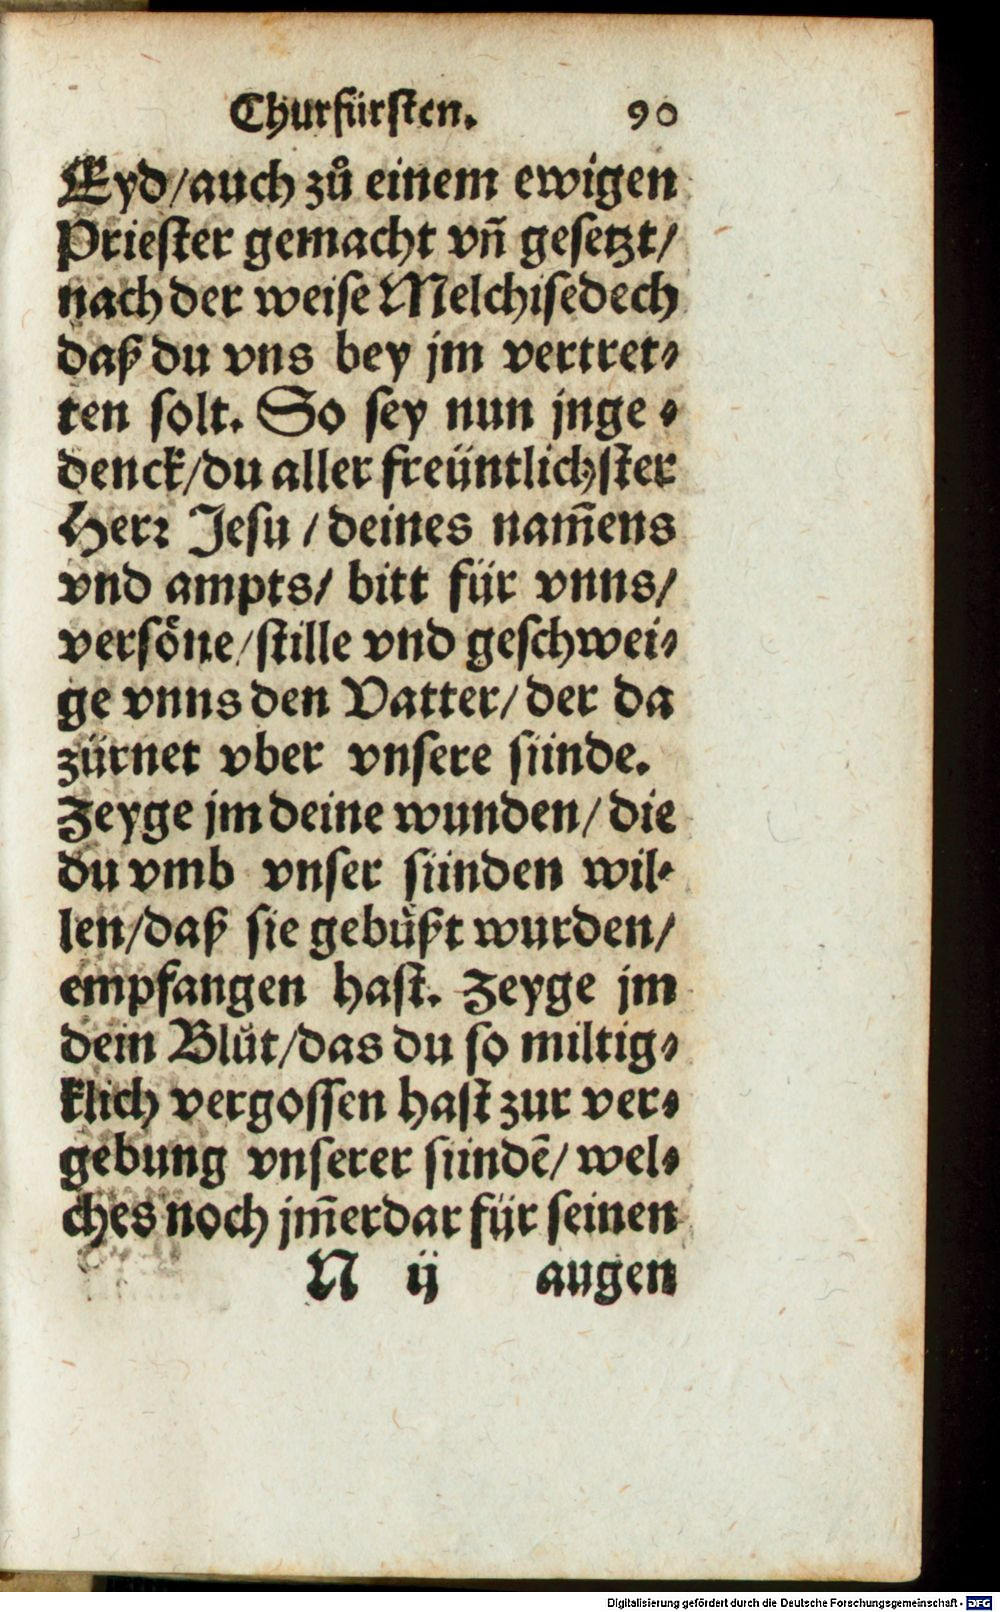 Churfürsten. 90
Eyd/auch zů einem ewigen
Priester gemacht vñ gesetzt/
nach der weise Melchisedech
daß du vns bey jm vertret⸗
ten solt. So sey nun jnge⸗
denck/du aller freüntlichster
Herꝛ Jesu/deines nam̃ens
vnd ampts/ bitt für vnns/
versöne/stille vnd geschwei⸗
ge vnns den Vatter/der da
zürnet vber vnsere sünde.
Zeyge jm deine wunden/die
du vmb vnser sünden wil⸗
len/daß sie gebůßt wurden/
empfangen hast. Zeyge jm
dein Blůt/das du so miltig⸗
klich vergossen hast zur ver⸗
gebung vnserer sündē/wel⸗
ches noch jm̃erdar für seinen
N ij augen
Digitalisierung gefördert durch die Deutsche Forschungsgemeinschaft - DFG